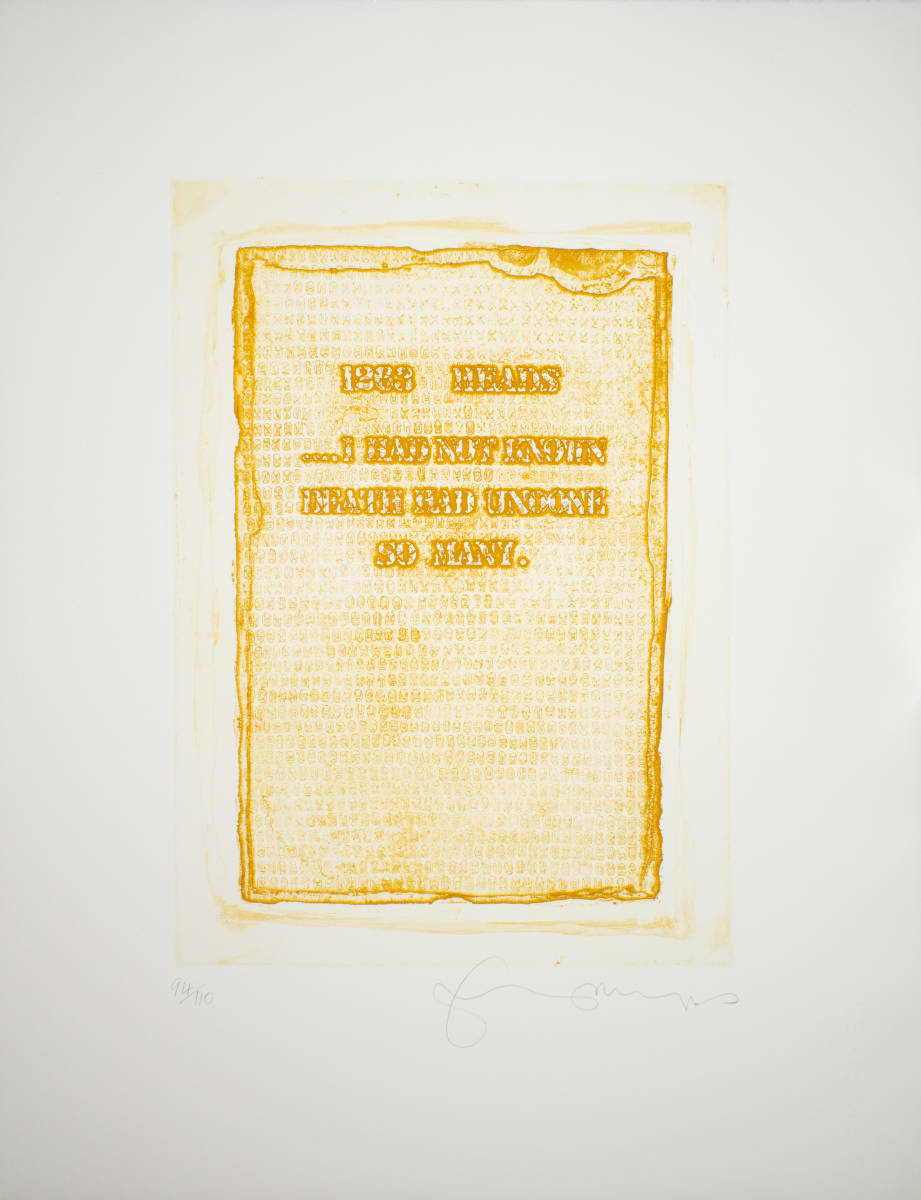 HEADS
....I HAD NOT KNOWN
DEATH HAD UNDONE
SO MANY.
94/110